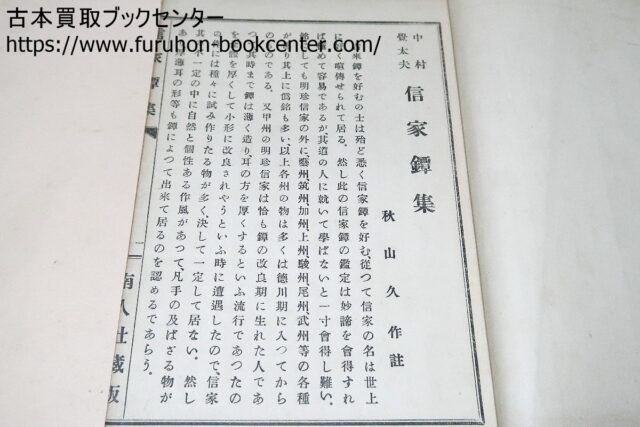 古本買取ブックセンター
https://www.furuhon-bookcenter.com/
中村
覺太夫
信家鐔集
秋山久作註
來鐔を好むの士は殆ど悉く信家鐔を好む、從つて信家の名は世上
に喧傳せられて居る。然し此の信家鐔の鑑定は妙諦を會得すれ
ば極めて容易であるが其道の人に就いて學ばないと一寸會得し難い、
銘しても明珍信家の外に、藝州、筑州、加州、上州、駿州、尾州、武州等の各種
があり其上に僞銘も多い、以上各州の物は多くは德川期に入つてから
のものである。又甲州の明珍信家は恰も鐔の改良期に生れた人であ
つて其時まで鐔は薄く造り、耳の方を厚くするといふ流行であつたの
を厚くして小形に改良されやうといふ時に遭遇したので、信家
には種々に試み作りたる物が多く、決して一定して居ない。然し
其不一定の中に自然と個性ある作風があつて、凡手の及ばざる物が
ある、耳の形等も鐔によつて出來て居るのを認めるであらう。
信家鐔集
一
南人社藏版